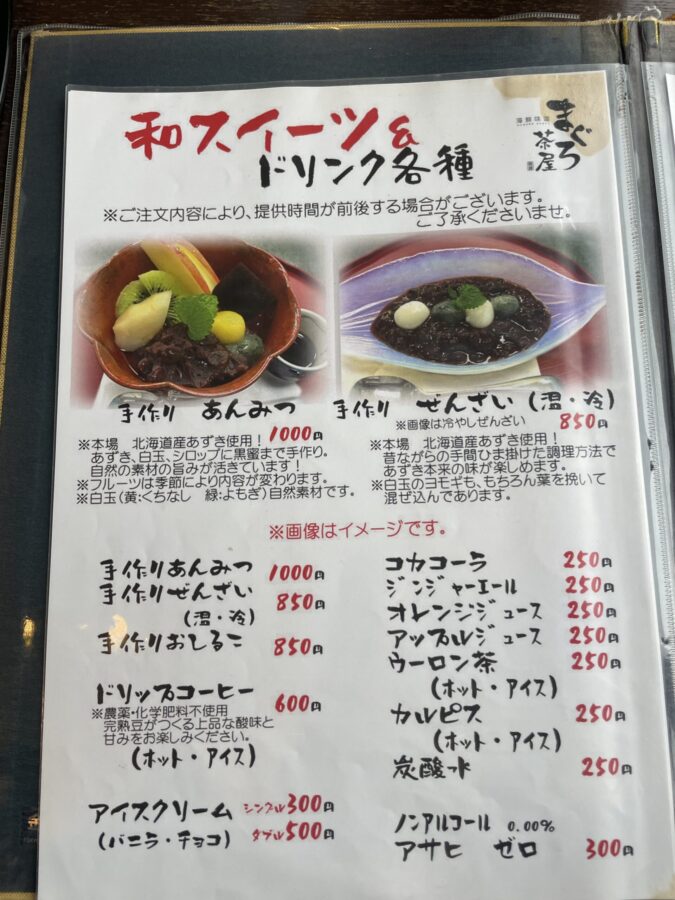 和スイーツ&
ドリンク各種
海鮮味処
まぐろ
茶屋
※ご注文内容により、提供時間が前後する場合がございます。
ご了承くださいませ。
手作り あんみつ
1000円
※本場 北海道産あずき使用！
あずき、白玉、シロップに黒蜜まで手作り。
自然の素材の旨みが活きています！
※フルーツは季節により内容が変わります。
※白玉(黄:くちなし 緑:よもぎ)自然素材です。
手作り ぜんざい(温・冷)
※画像は冷やしぜんざい 850円
※本場 北海道産あずき使用！
昔ながらの手間ひま掛けた調理方法で
あずき本来の味が楽しめます。
※白玉のヨモギも、もちろん葉を挽いて
混ぜ込んであります。
※画像はイメージです。
手作りあんみつ 1000円
手作りぜんざい 850円
(温・冷)
手作りおしるこ 850円
ドリップコーヒー 600円
※農薬・化学肥料不使用
完熟豆がつくる上品な酸味と
甘みをお楽しみください。
(ホット・アイス)
アイスクリーム シングル300円
(バニラ・チョコ) ダブル500円
コカコーラ 250円
ジンジャーエール 250円
オレンジジュース 250円
アップルジュース 250円
ウーロン茶 250円
(ホット・アイス)
カルピス 250円
(ホット・アイス)
炭酸水 250円
ノンアルコール 0.00%
アサヒ ゼロ 300円